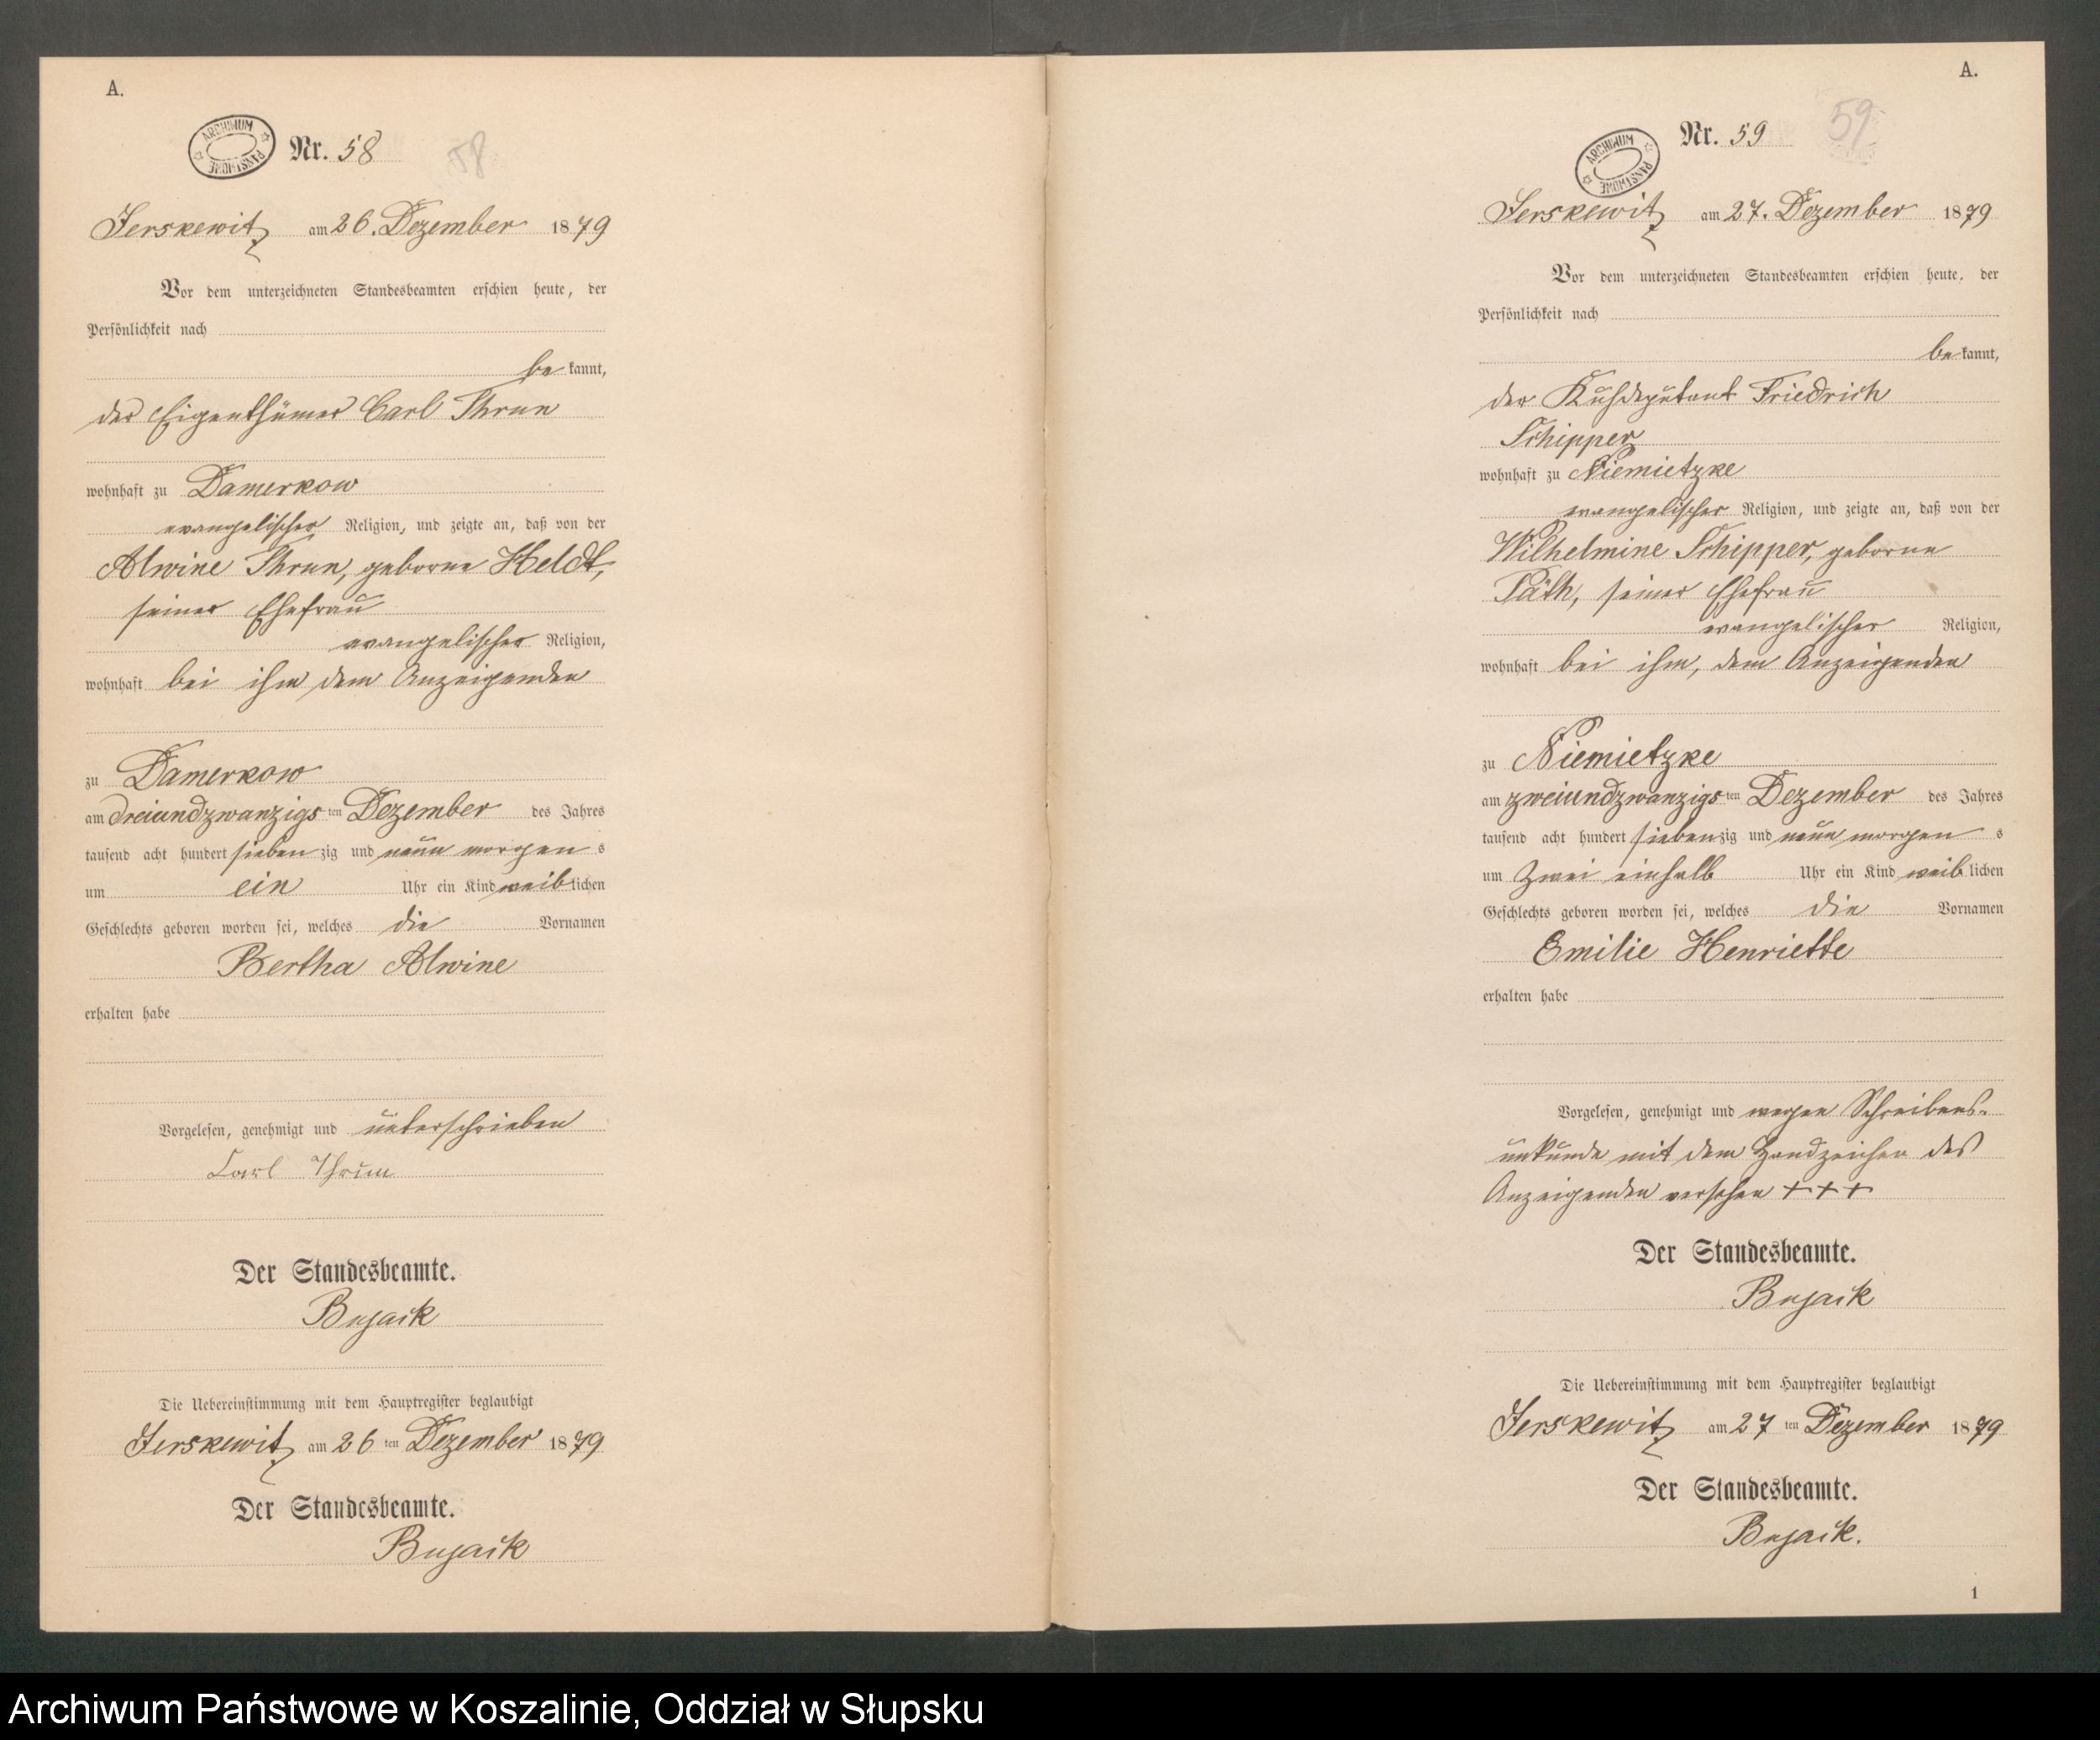 A.
ARCHIWUM PAŃSTWOWE
Nr. 58
58
Jerskewitz am 26. Dezember 1879
Vor dem unterzeichneten Standesbeamten erschien heute, der
Persönlichkeit nach
bekannt,
der Eigenthümer Carl Thrun
wohnhaft zu Damerkow
evangelischer Religion, und zeigte an, daß von der
Alwine Thrun, geborne Heldt,
seiner Ehefrau
evangelischer Religion,
wohnhaft bei ihm dem Anzeigenden
zu Damerkow
am dreiundzwanzigsten Dezember des Jahres
tausend acht hundert siebenzig und neun morgens
um ein Uhr ein Kind weiblichen
Geschlechts geboren worden sei, welches die Vornamen
Bertha Alwine
erhalten habe
Vorgelesen, genehmigt und unterschrieben
Carl Thrun
Der Standesbeamte.
Bujack
Die Uebereinstimmung mit dem Hauptregister beglaubigt
Jerskewitz am 26ten Dezember 1879
Der Standesbeamte.
Bujack
A.
ARCHIWUM PAŃSTWOWE
Nr. 59
59
Jerskewitz am 27. Dezember 1879
Vor dem unterzeichneten Standesbeamten erschien heute, der
Persönlichkeit nach
bekannt,
der Kuhdeputant Friedrich
Schipper
wohnhaft zu Niemietzke
evangelischer Religion, und zeigte an, daß von der
Wilhelmine Schipper, geborne
Päth, seiner Ehefrau
evangelischer Religion,
wohnhaft bei ihm, dem Anzeigenden
zu Niemietzke
am zweiundzwanzigsten Dezember des Jahres
tausend acht hundert siebenzig und neun morgens
um zwei einhalb Uhr ein Kind weiblichen
Geschlechts geboren worden sei, welches die Vornamen
Emilie Henriette
erhalten habe
Vorgelesen, genehmigt und wegen Schreibens-
unkunde mit dem Handzeichen des
Anzeigenden versehen +++
Der Standesbeamte.
Bujack
Die Uebereinstimmung mit dem Hauptregister beglaubigt
Jerskewitz am 27ten Dezember 1879
Der Standesbeamte.
Bujack.
1
Archiwum Państwowe w Koszalinie, Oddział w Słupsku